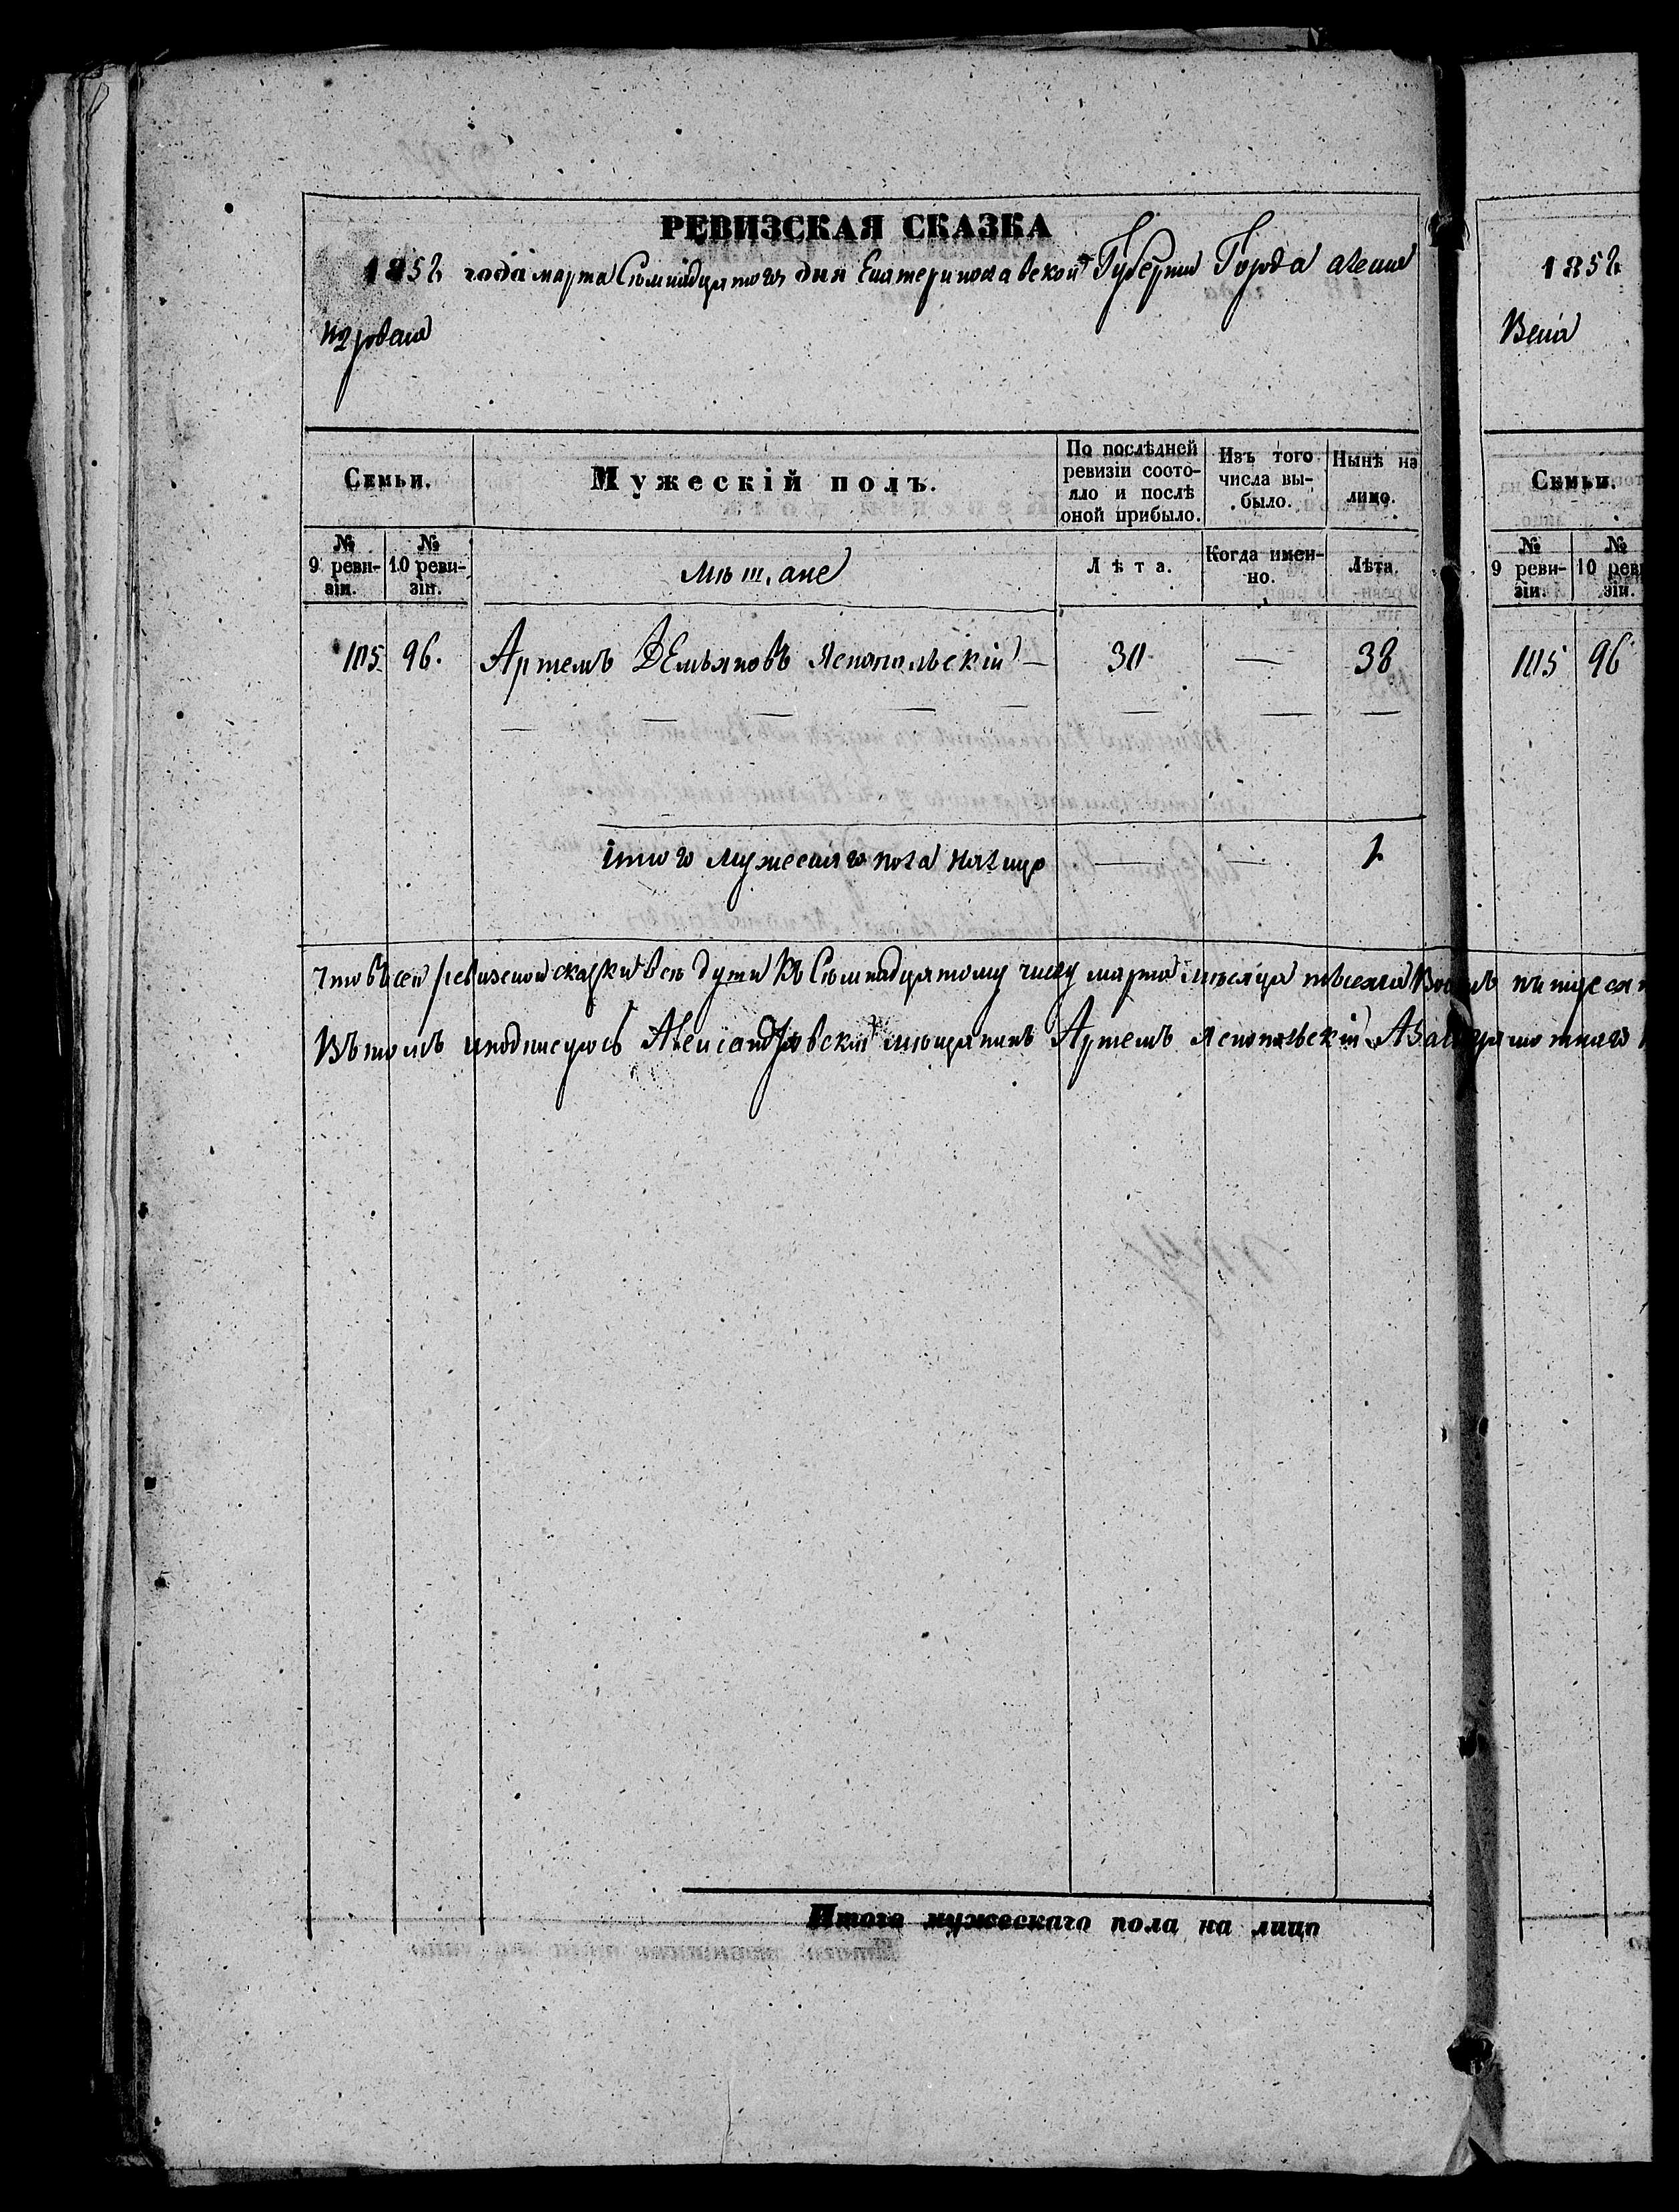 РЕВИЗСКАЯ СКАЗКА
1858 года марта Сѣмнадцятого дня Екатеринославской Губерніи Города Алекса
ндровска
Семьи.
Мужескій полъ.
По послѣдней ревизіи состояло и послѣ оной прибыло.
Изъ того числа выбыло.
Нынѣ на лицо.
№ 9 ревизіи.
№ 10 ревизіи.
Мѣщане
Лѣта.
Когда именно.
Лѣта.
105 96. Артемъ Демьяновъ Яснопольскій — 30 — 38
Итого мужескаго пола налицо — — 1
Что въ сей ревизской скаски всѣ души Къ Сѣмнадцятому числу марта мѣсяца
Въ томъ и подписуюсь Александровскій мѣщанинъ Артемъ Яснопольскій А За
Итого мужескаго пола на лицо
1858
Семьи.
№ 9 ревизіи.
№ 10 реви
зіи.
105 96